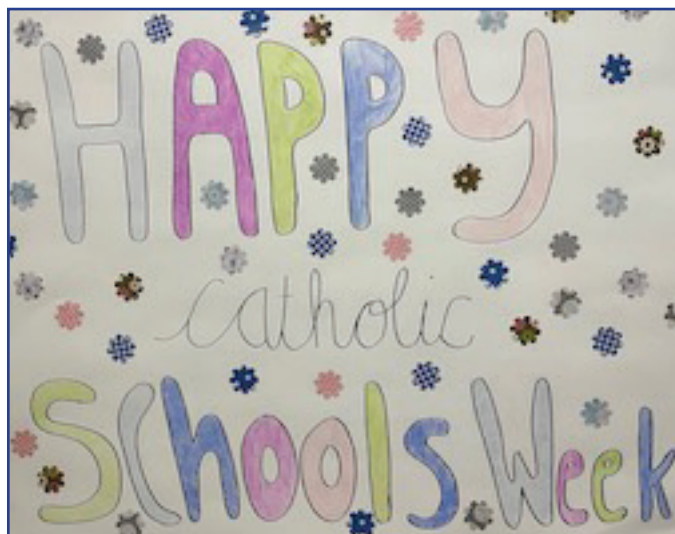 HAPPY
catholic
Schools Week